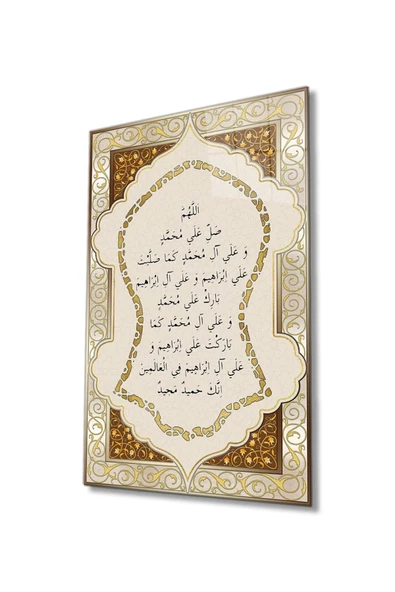 اَللّٰهُمَّ
صَلِّ عَلَي مُحَمَّدٍ
وَ عَلَي آلِ مُحَمَّدٍ كَمَا صَلَّيْتَ
عَلَي اِبْرَاهِيمَ وَ عَلَي آلِ اِبْرَاهِيمَ
بَارِكْ عَلَي مُحَمَّدٍ
وَ عَلَي آلِ مُحَمَّدٍ كَمَا
بَارَكْتَ عَلَي اِبْرَاهِيمَ وَ
عَلَي آلِ اِبْرَاهِيمَ فِي الْعَالَمِينَ
اِنَّكَ حَمِيدٌ مَجِيدٌ